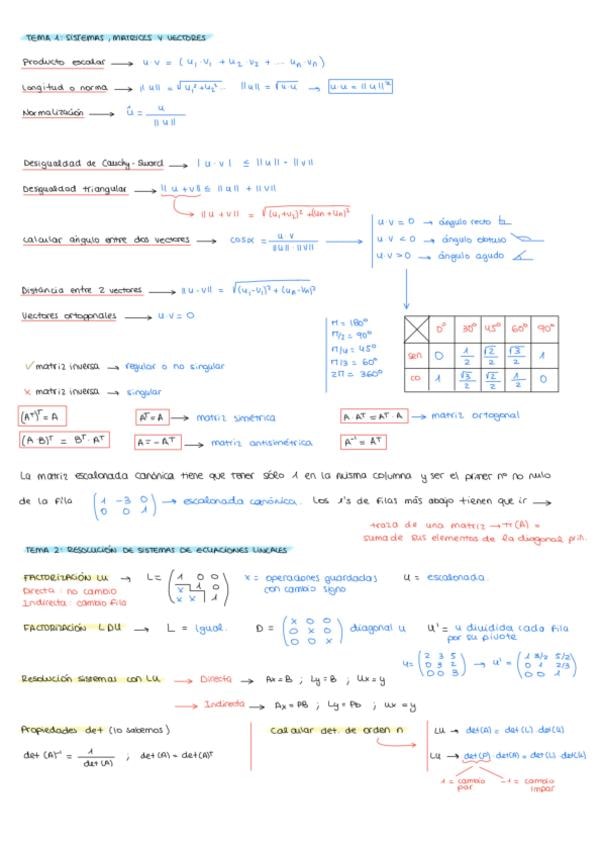 TEMA 1: SISTEMAS, MATRICES Y VECTORES
Producto escalar → u·v = (u₁·v₁ + u₂·v₂ + ... uₙ·vₙ)
Longitud o norma → ||u|| = √u₁²+u₂²... ||u|| = √u·u → u·u = ||u||²
Normalización → û = u / ||u||
Desigualdad de Cauchy-Sword → |u·v| ≤ ||u||·||v||
Desigualdad triangular → ||u+v|| ≤ ||u|| + ||v||
→ ||u+v|| = √(u₁+v₂)² + (un+vn)²
Calcular angulo entre dos vectores → cosα = u·v / ||u||·||v|| →
u·v = 0 → ángulo recto
u·v < 0 → ángulo obtuso
u·v > 0 → ángulo agudo
Distáncia entre 2 vectores → ||u·v|| = √(u₁-v₁)² + (un-vn)²
Vectores ortogonales → u·v = 0
π = 180°
π/2 = 90°
π/4 = 45°
π/3 = 60°
2π = 360°
0° 30° 45° 60° 90°
sen 0 1/2 √2/2 √3/2 1
co 1 √3/2 √2/2 1/2 0
✓ matriz inversa → regular o no singular
× matriz inversa → singular
(Aᵀ)ᵀ = A Aᵀ = A → matriz simétrica A·Aᵀ = Aᵀ·A → matriz ortogonal
(A·B)ᵀ = Bᵀ·Aᵀ A = -Aᵀ → matriz antisimétrica A⁻¹ = Aᵀ
La matriz escalonada canónica tiene que tener sólo 1 en la misma columna y ser el primer nº no nulo
de la fila (1 -3 0 / 0 0 1) → escalonada canónica. Los 1's de filas más abajo tienen que ir →
traza de una matriz → tr(A) =
suma de sus elementos de la diagonal prin.
TEMA 2: RESOLUCIÓN DE SISTEMAS DE ECUACIONES LINEALES
FACTORIZACIÓN LU → L = (1 0 0 / x 1 0 / x x 1) x = operaciones guardadas con cambio signo U = escalonada.
Directa: no cambio
Indirecta: cambio fila
FACTORIZACIÓN LDU → L = Igual. D = (x 0 0 / 0 x 0 / 0 0 x) diagonal u U' = u dividida cada fila por su pivote
U = (2 3 5 / 0 3 2 / 0 0 3) → U' = (1 3/2 5/2 / 0 1 2/3 / 0 0 1)
Resolución sistemas con LU → Directa → Ax=B ; Ly=B ; Ux=y
→ Indirecta → Ax=PB ; Ly=Pb ; Ux=y
Propiedades det (10 sabemos)
det(A)⁻¹ = 1 / det(A) ; det(A) = det(A)ᵀ
Calcular det. de orden n
LU → det(A) = det(L)·det(U)
LU → det(P)·det(A) = det(L)·det(U)
1 = cambio par -1 = cambio impar